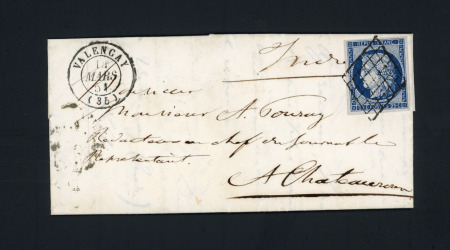 VALENCAY
14
MARS
51
(35)
REPUB FRANC
Indre
Monsieur
Monsieur A.
Rédacteur en chef du Journal le
Représentant.
A Chateauroux